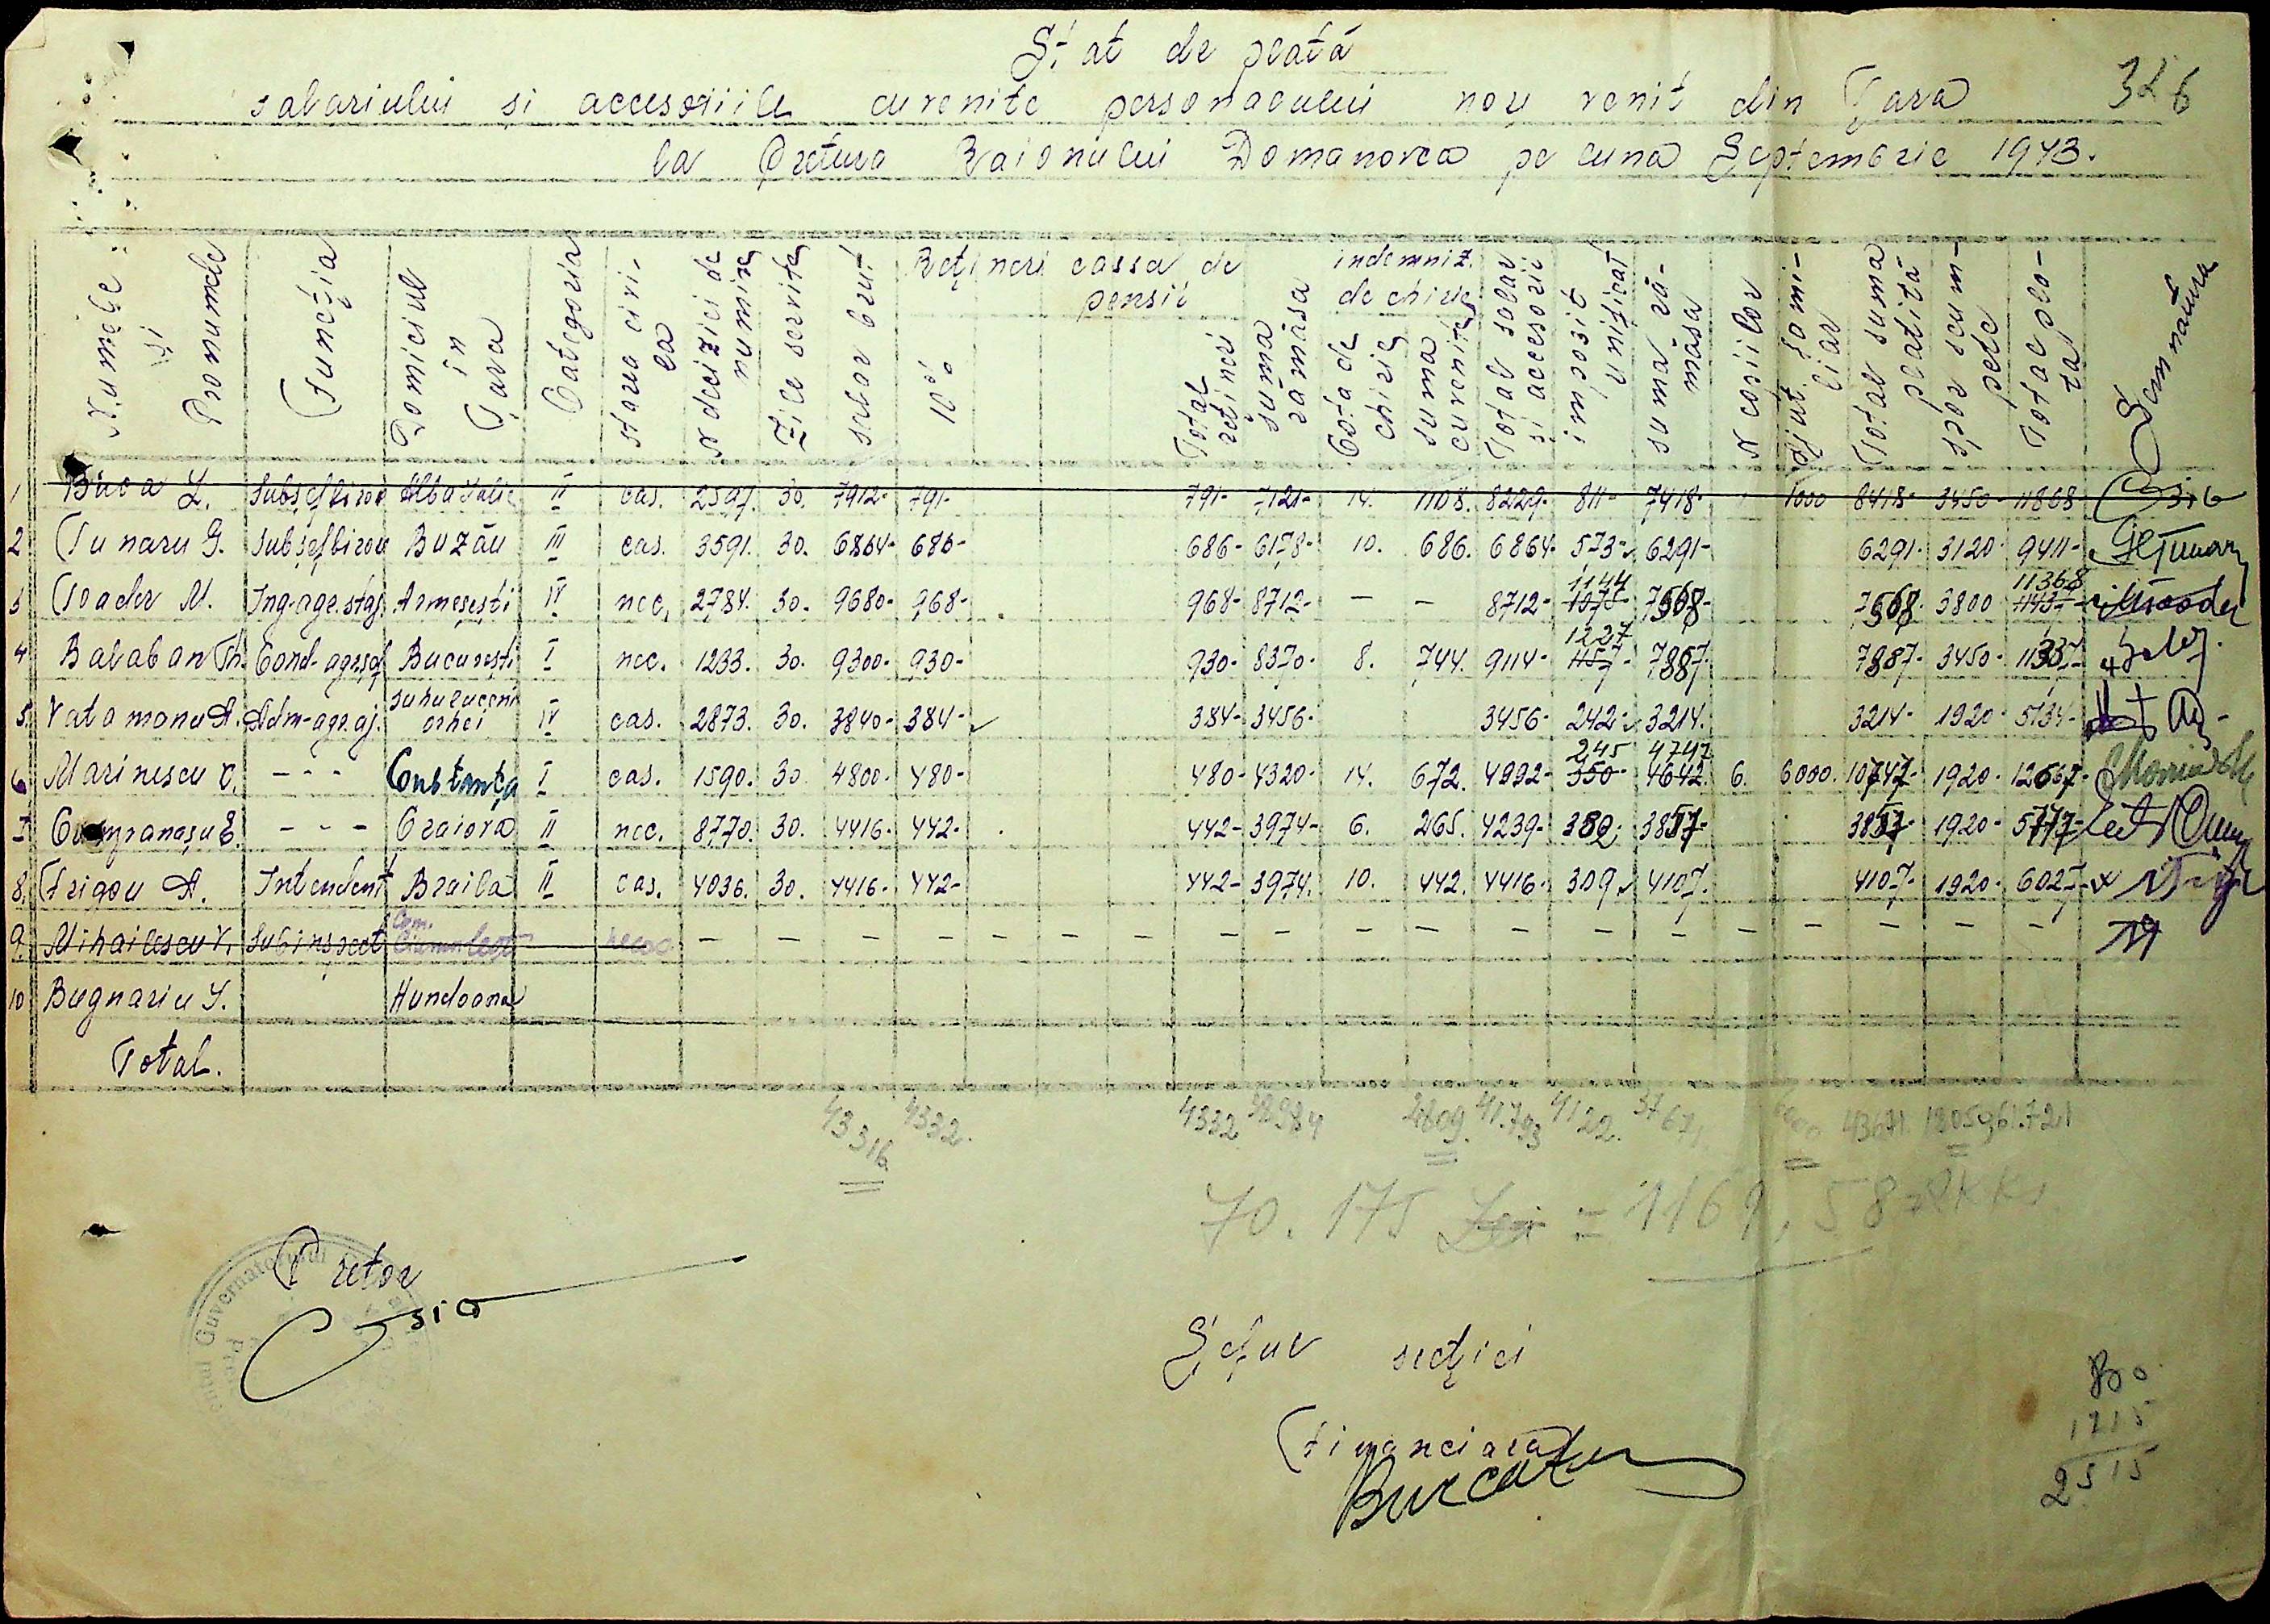 Stat de plată
326
salariului și accesoriile cuvenite personalului nou venit din Țara
la Pretura Raionului Domanovca pe luna Septembrie 1943.
Numele și Pronumele | Funcția | Domiciul în Țara | Categoria | starea civila | N decizici de numire | Zile servite | salar brut | Rețineri cassa de pensii | 10% | Total rețineri | suma rămasa | indemniz. de chirie | Cota de chirie | suma cuvenita | Total salar și accesorii | impozit unificat | suma rămasa | N copiilor | Ajut. familiar | Total suma platita | spor scumpete | Total plata | Semnatura
1 Buca L. Subșef birou Alba Iulie II cas. 2597. 30. 7912- 791- 791- 7121- 14. 1108. 8229- 811- 7418- 1000 8418- 3450- 11868
2 Tunaru G. Subșef birou Buzău III cas. 3591. 30. 6864- 686- 686- 6178- 10. 686. 6864- 573- 6291- 6291- 3120- 9411-
1144 11368
3 Toader M. Ing-agr. staj. Armeșești IV nec. 2784. 30. 9680- 968- 968- 8712- – – 8712- 1075- 7568- 7568- 3800
1227
4 Balaban Th. Cond-agr. șef București I nec. 1233. 30. 9300- 930- 930- 8370- 8. 744. 9114- 1157- 7887- 7887- 3450- 11337-
5. Vatamanu A. Adm-agr. aj. Suhuluceni orhei IV cas. 2873. 30. 3840- 384- 384- 3456- 3456- 242- 3214. 3214- 1920- 5134-
245 4747
6 Marinescu C. - - - Constanța I cas. 1590. 30 4800- 480- 480- 4320- 14. 672. 4992- 350- 4642. 6. 6000. 10747- 1920- 12667-
7 E. - - - Craiova II nec. 8770. 30. 4416- 442- 442- 3974- 6. 265. 4239- 382. 3857- 3857- 1920- 5777-
8. Frigou A. Intendent Braila II cas. 4036. 30. 4416- 442- 442- 3974. 10. 442. 4416- 309 4107. 4107- 1920- 6027-
9. Mihailescu V. Subinspect Com. – – – – – – – – – – – – – – – – –
10 Bugnariu I. Hundoana
Total.
43316 4332. 4332 38984 2809. 41.793 4122. 37671. 6000 43671. 18050 61.721
70.175 Lei = 1169,58 RKKS
Pretor
Șeful secției
Financiara
Burcatu
1215
2515